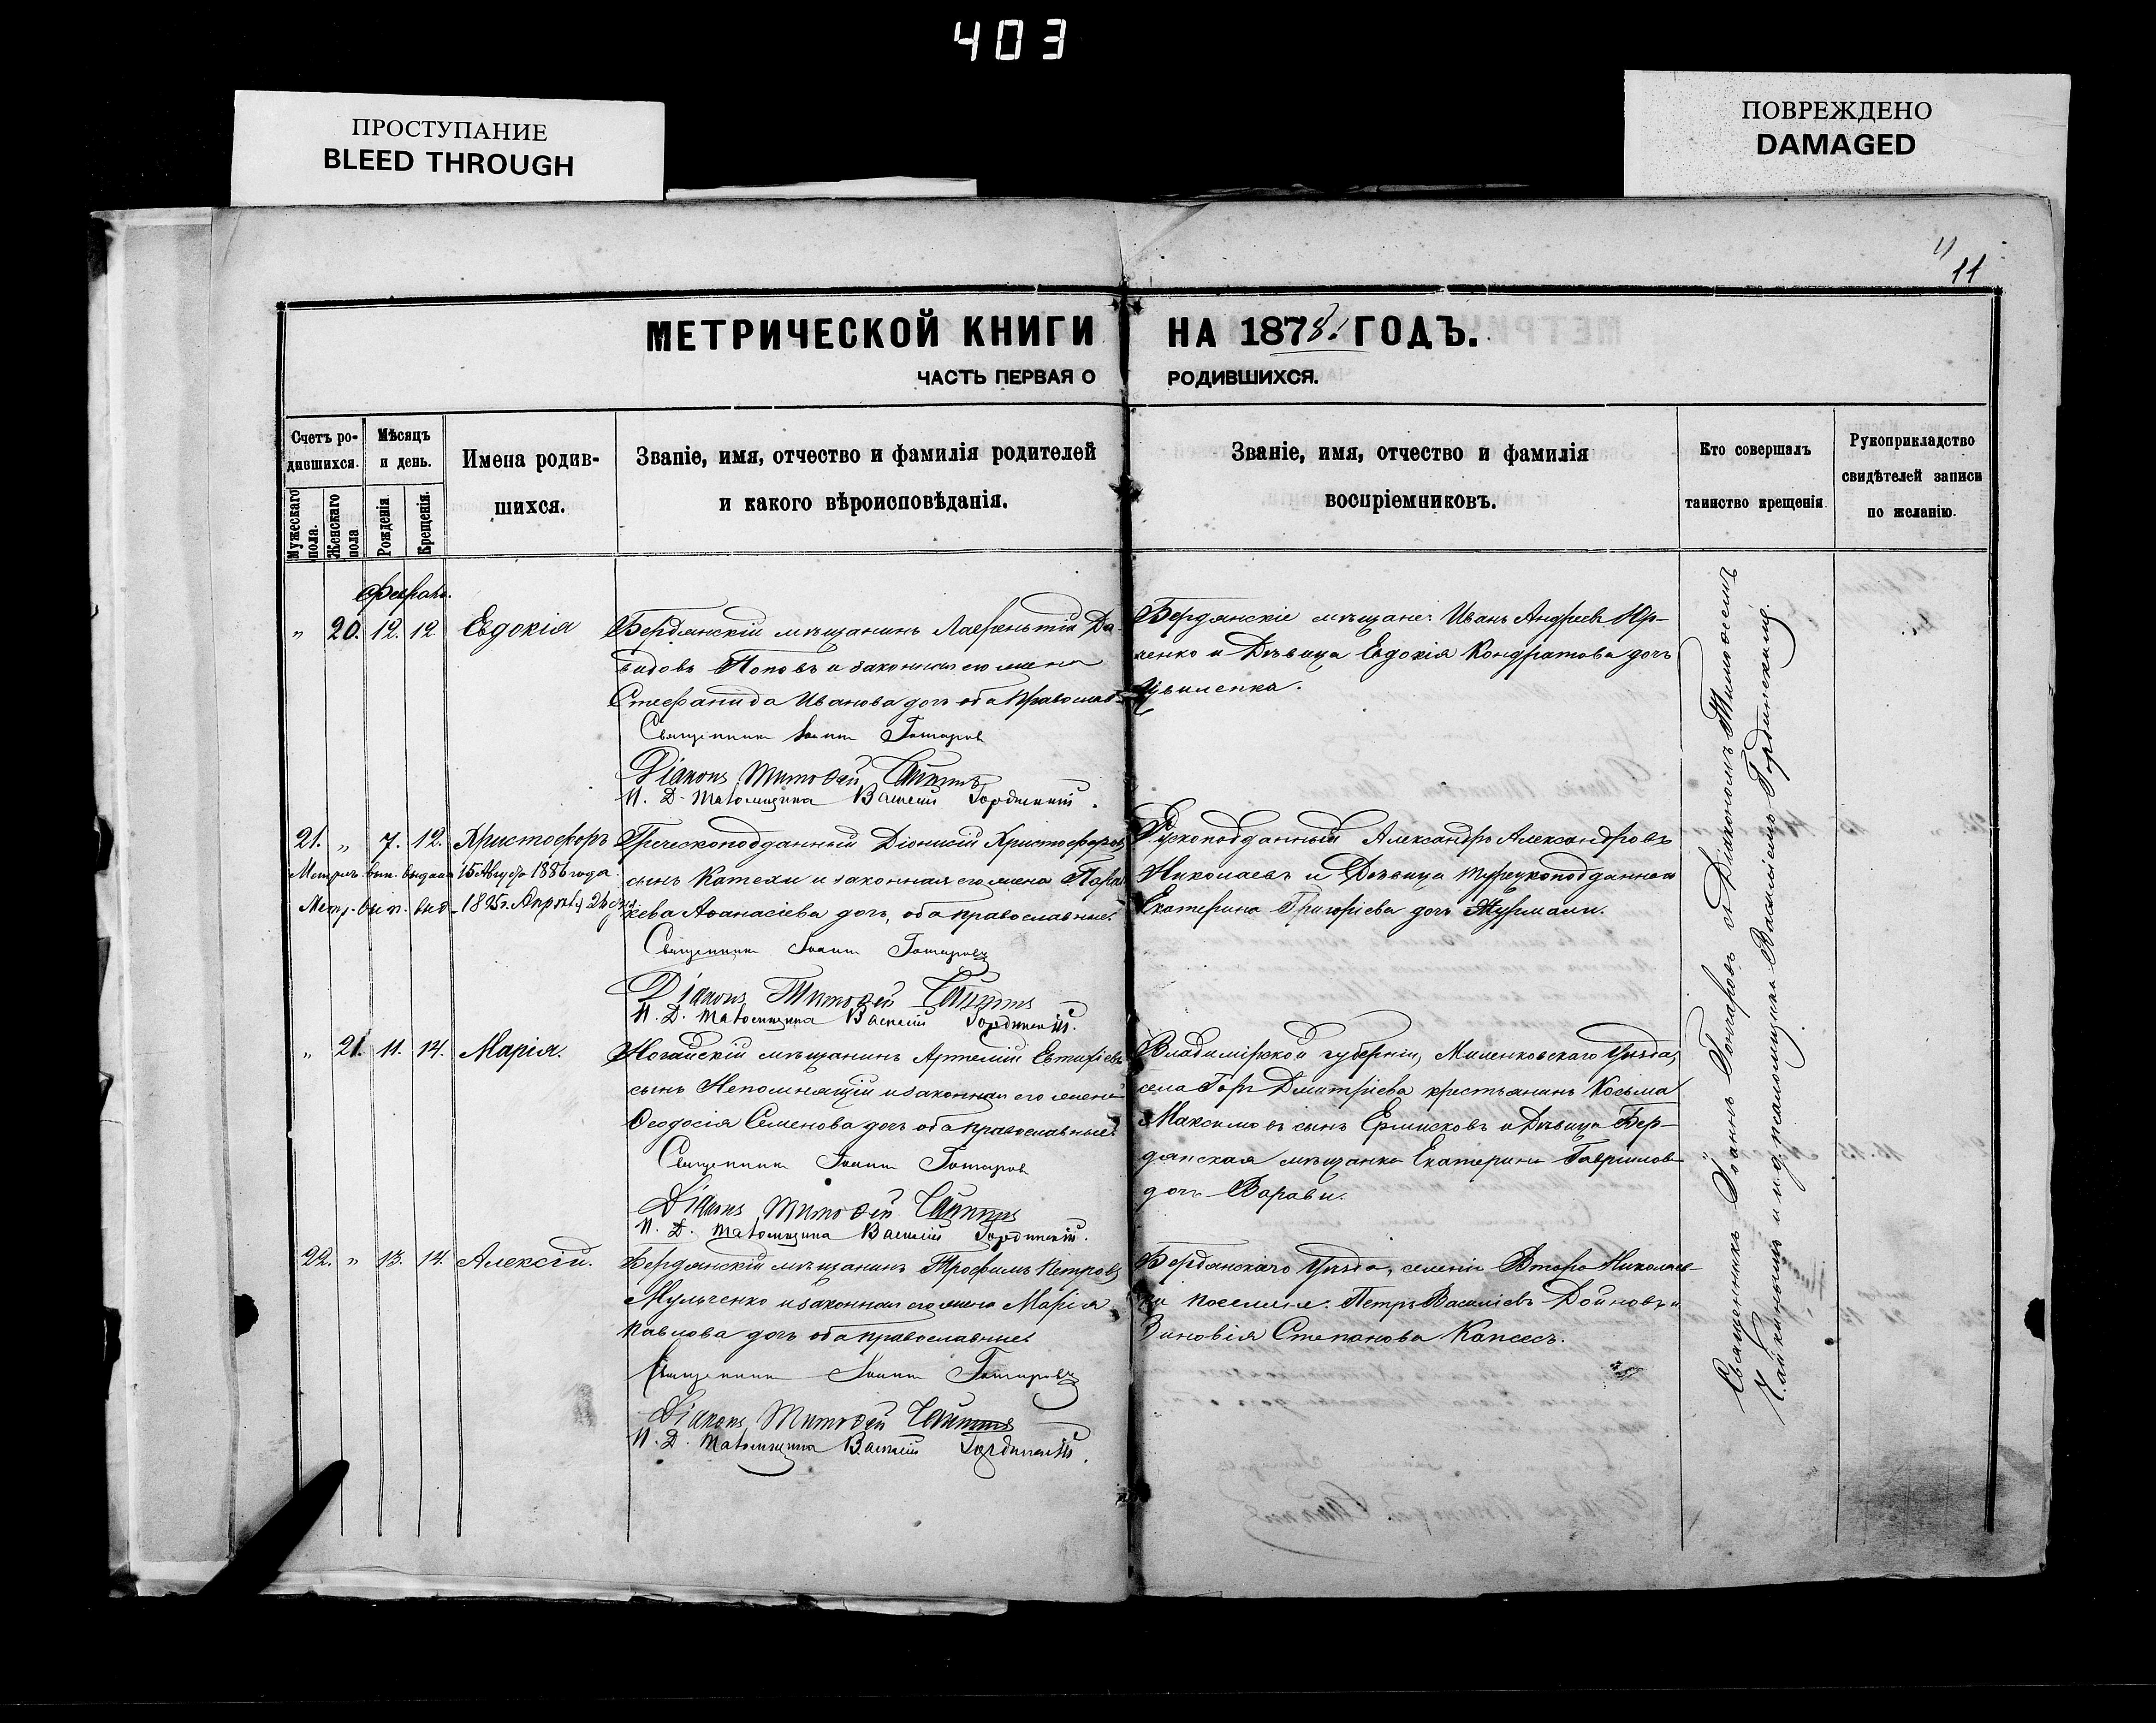 403
ПРОСТУПАНИЕ
BLEED THROUGH
ПОВРЕЖДЕНО
DAMAGED
11
МЕТРИЧЕСКОЙ КНИГИ НА 1878 ГОДЪ.
ЧАСТЬ ПЕРВАЯ О РОДИВШИХСЯ.
Счетъ ро-
дившихся.
Мужескаго пола.
Женскаго пола
Мѣсяцъ
и день.
Рожденія
Крещенія.
Имена родив-
шихся.
Званіе, имя, отчество и фамилія родителей
и какого вѣроисповѣданія.
Званіе, имя, отчество и фамилія
воспріемниковъ.
Кто совершалъ
таинство крещенія
Рукоприкладство
свидѣтелей записи
по желанію.
Феврал.
" 20. 12. 12 Евдокія
Бердянскій мѣщанинъ Лаврентій Да-
видовъ Поповъ и законная его жена
Стефанида Иванова дочь оба православ
Священникъ Іоаннъ Гончаровъ
Діаконъ Тимофей
И. Д. Василій Гординскій.
Бердянскіе мѣщане: Иванъ Андреевъ Юр-
ченко и Дѣвица Евдокія Кондратова дочь
21. " 7. 12. Христофоръ
Метрич. вып. выдана 15 Августа 1886 года.
Метр. вып. выд.
Греческоподданный Діонисій Христофоровъ
сынъ и законная его жена Парас
кева Аѳанасіева дочь, оба православные.
Священникъ Іоаннъ Гончаровъ
Діаконъ Тимофей
И. Д. Василій Гординскій.
Рускоподданный Александръ Александровъ
Николаевъ и Дѣвица турецкоподданная
Екатерина Григоріева дочь
" 21. 11. 14. Марія.
Ногайскій мѣщанинъ Артемій Евтихіевъ
сынъ Непомнящій и законная его жена
Ѳеодосія Семенова дочь оба православные.
Священникъ Іоаннъ Гончаровъ
Діаконъ Тимофей
И. Д. Василій Гординскій.
Владимірской губерніи, Меленковскаго Уѣзда,
села Дмитріева крестьянинъ Косьма
Максимовъ сынъ Ермисковъ и Дѣвица Бер-
дянская мѣщанка Екатерина Гаврилова
дочь
22. " 13. 14. Алексій.
Бердянскій мѣщанинъ Трофимъ Петровъ
Мульченко и законная его жена Марія
Павлова дочь оба православные.
Священникъ Іоаннъ Гончаровъ
Діаконъ Тимофей
И. Д. Василій Гординскій.
Бердянскаго Уѣзда, селенія Второ-Николаев-
ки Петръ Василіевъ Дойновъ и
Зиновія Степанова
Священникъ Іоаннъ Гончаровъ съ Діакономъ Тимоѳеемъ
и и. д. псаломщика Василіемъ Гординскимъ.